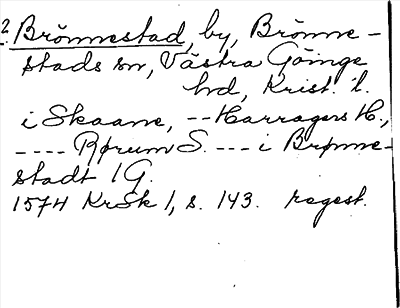 2. Brönnestad, by, Brönne-
stads sn, Västra Göinge
hd, Krist. l.
i Skaane, -- Harragers H.,
---- Rørum S. --- i Brønne-
stadt 1 G.
1574 KrSk 1, s. 143. regest.